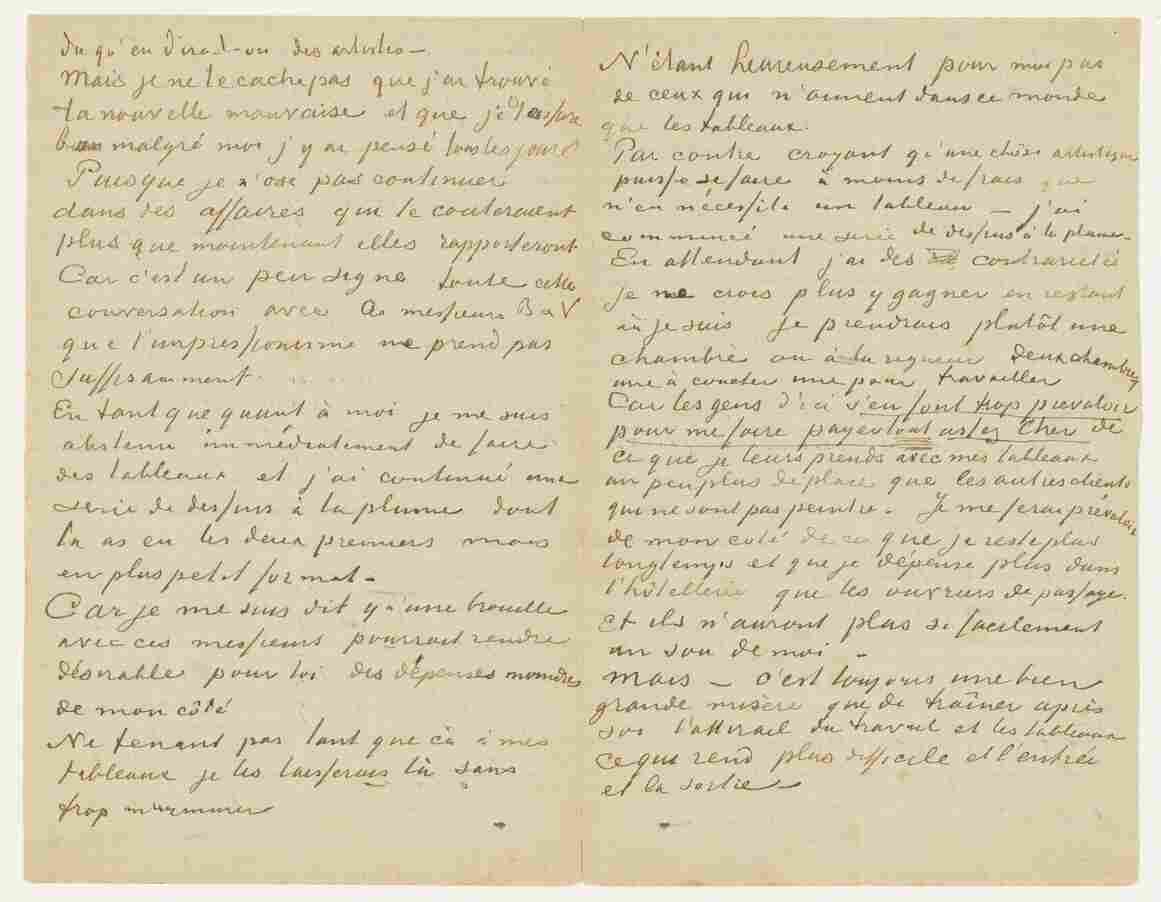 du qu'en dira-t-on des artistes –.
Mais je ne te cache pas que j'ai trouvé
ta nouvelle mauvaise et que
bien malgré moi j'y ai pensé tous les jours
Puisque je n'ose pas continuer
dans des affaires qui te couteraient
plus que maintenant elles rapporteront
Car c'est un peu signe toute cette
conversation avec messieurs B & V
que l'impressionisme ne prend pas
suffisamment.
En tant que quant à moi je me suis
abstenu immédiatement de faire
des tableaux et j'ai continué une
serie de dessins à la plume dont
tu as eu les deux premiers mais
en plus petit format –
Car je me suis dit qu'une brouille
avec ces messieurs pourrait rendre
désirable pour toi des dépenses moindres
de mon côté
Ne tenant pas tant que ça à mes
tableaux je les laisserais là sans
trop murmurer
N'étant heureusement pour moi pas
de ceux qui n'aiment dans ce monde
que les tableaux.
Par contre croyant qu'une chose artistique
puisse se faire à moins de frais que
n'en nécessite un tableau – j'ai
commencé une serie de dessins à la plume –
En attendant j'ai des contrariétés
je ne crois plus y gagner en restant
où je suis je prendrais plutôt une
chambre ou à la rigueur deux chambres
une à coucher une pour travailler
Car les gens d'ici s'en font trop prevaloir
pour me faire payer tout assez cher de
ce que je leurs prends avec mes tableaux
un peu plus de place que les autres clients
qui ne sont pas peintre. Je me ferai prévaloir
de mon coté de ce que je reste plus
longtemps et que je dépense plus dans
l'hôtellerie que les ouvriers de passage.
et ils n'auront plus si facilement
un sou de moi –
Mais – c'est toujours une bien
grande misère que de traîner après
soi l'attirail du travail et les tableaux
ce qui rend plus difficile et l'entrée
et la sortie –